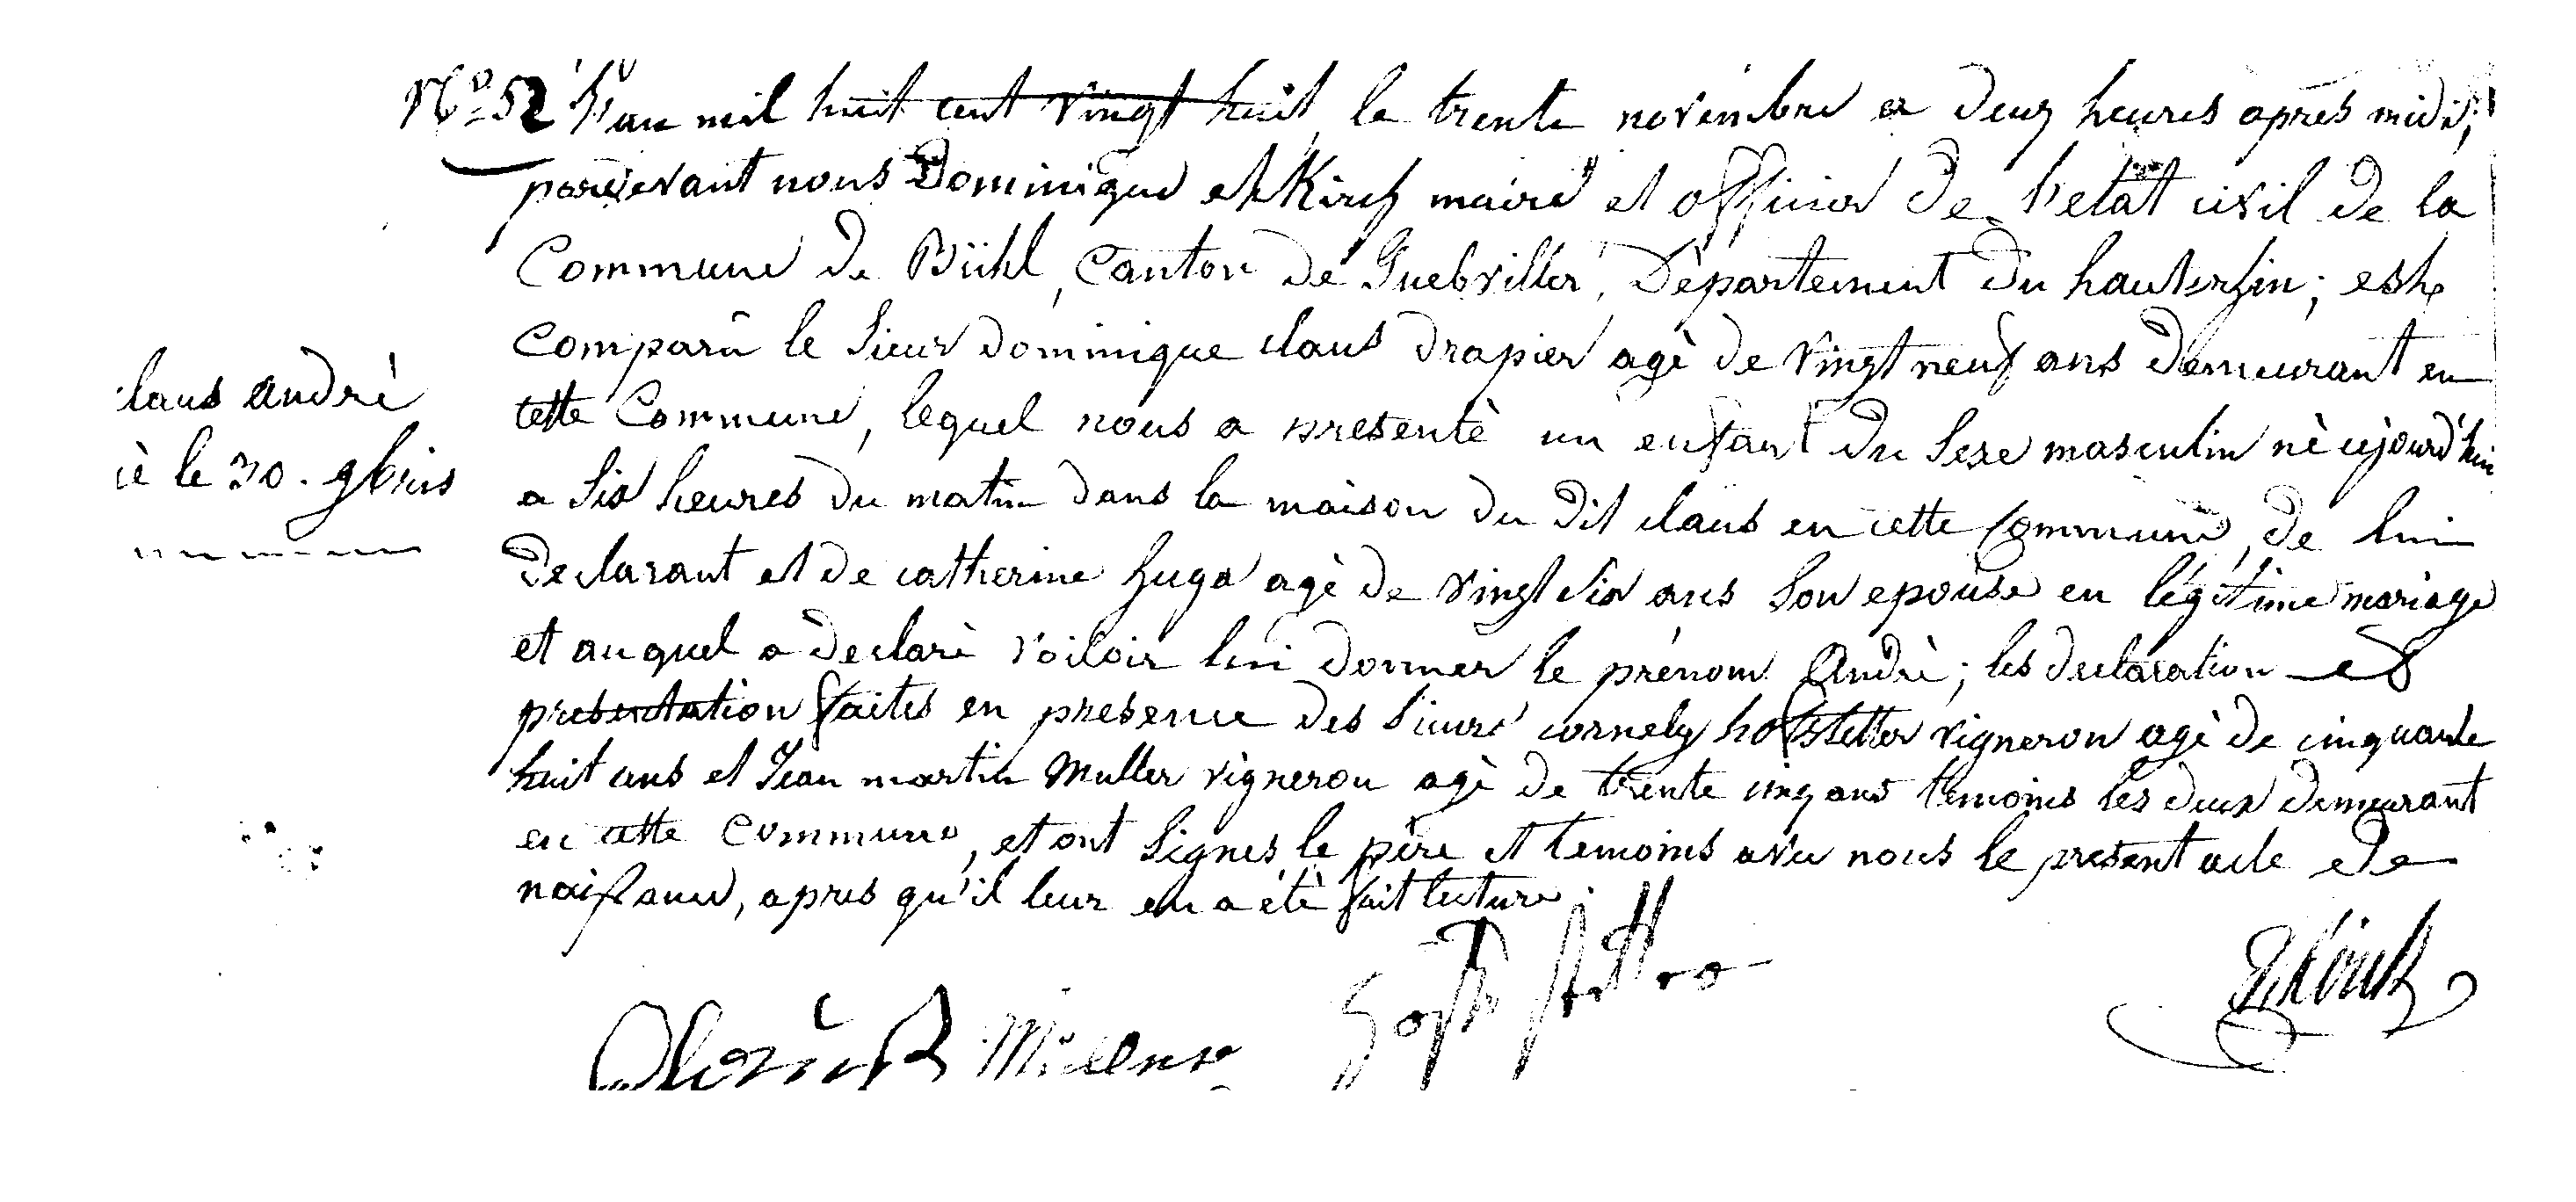 No. 52 L'an mil huit cent vingt huit, le trente novembre a deux heures après midi,
pardevant nous Dominique et Kirch maire et officier de l'etat civil de la
Commune de Bühl, Canton de Guebviller, Département du hautrhin; est
Comparu le Sieur dominique claus drapier agè de vingt neuf ans demeurant en
cette Commune, lequel nous a presentè un enfant du Sexe masculin nè cejourd'hui
laus andrè
è le 30. 9bris
a Six heures du matin dans la maison du dit claus en cette Commune, de lui
declarant et de catherine huga agè de vingt Six ans Son epouse en légitime mariage
et auquel a declarè voiloir lui donner le prénom Andrè; les declaration et
presentation faites en presence des Sieurs cornely hofstetter vigneron agè de cinquante
huit ans et Jean martin Muller vigneron agè de trente cinq ans temoins les deux demeurant
en cette Commune, et ont Signes le père et temoins avec nous le present acte de
naissance, apres qu'il leur en a étè fait lecture.
Müller
Kirch